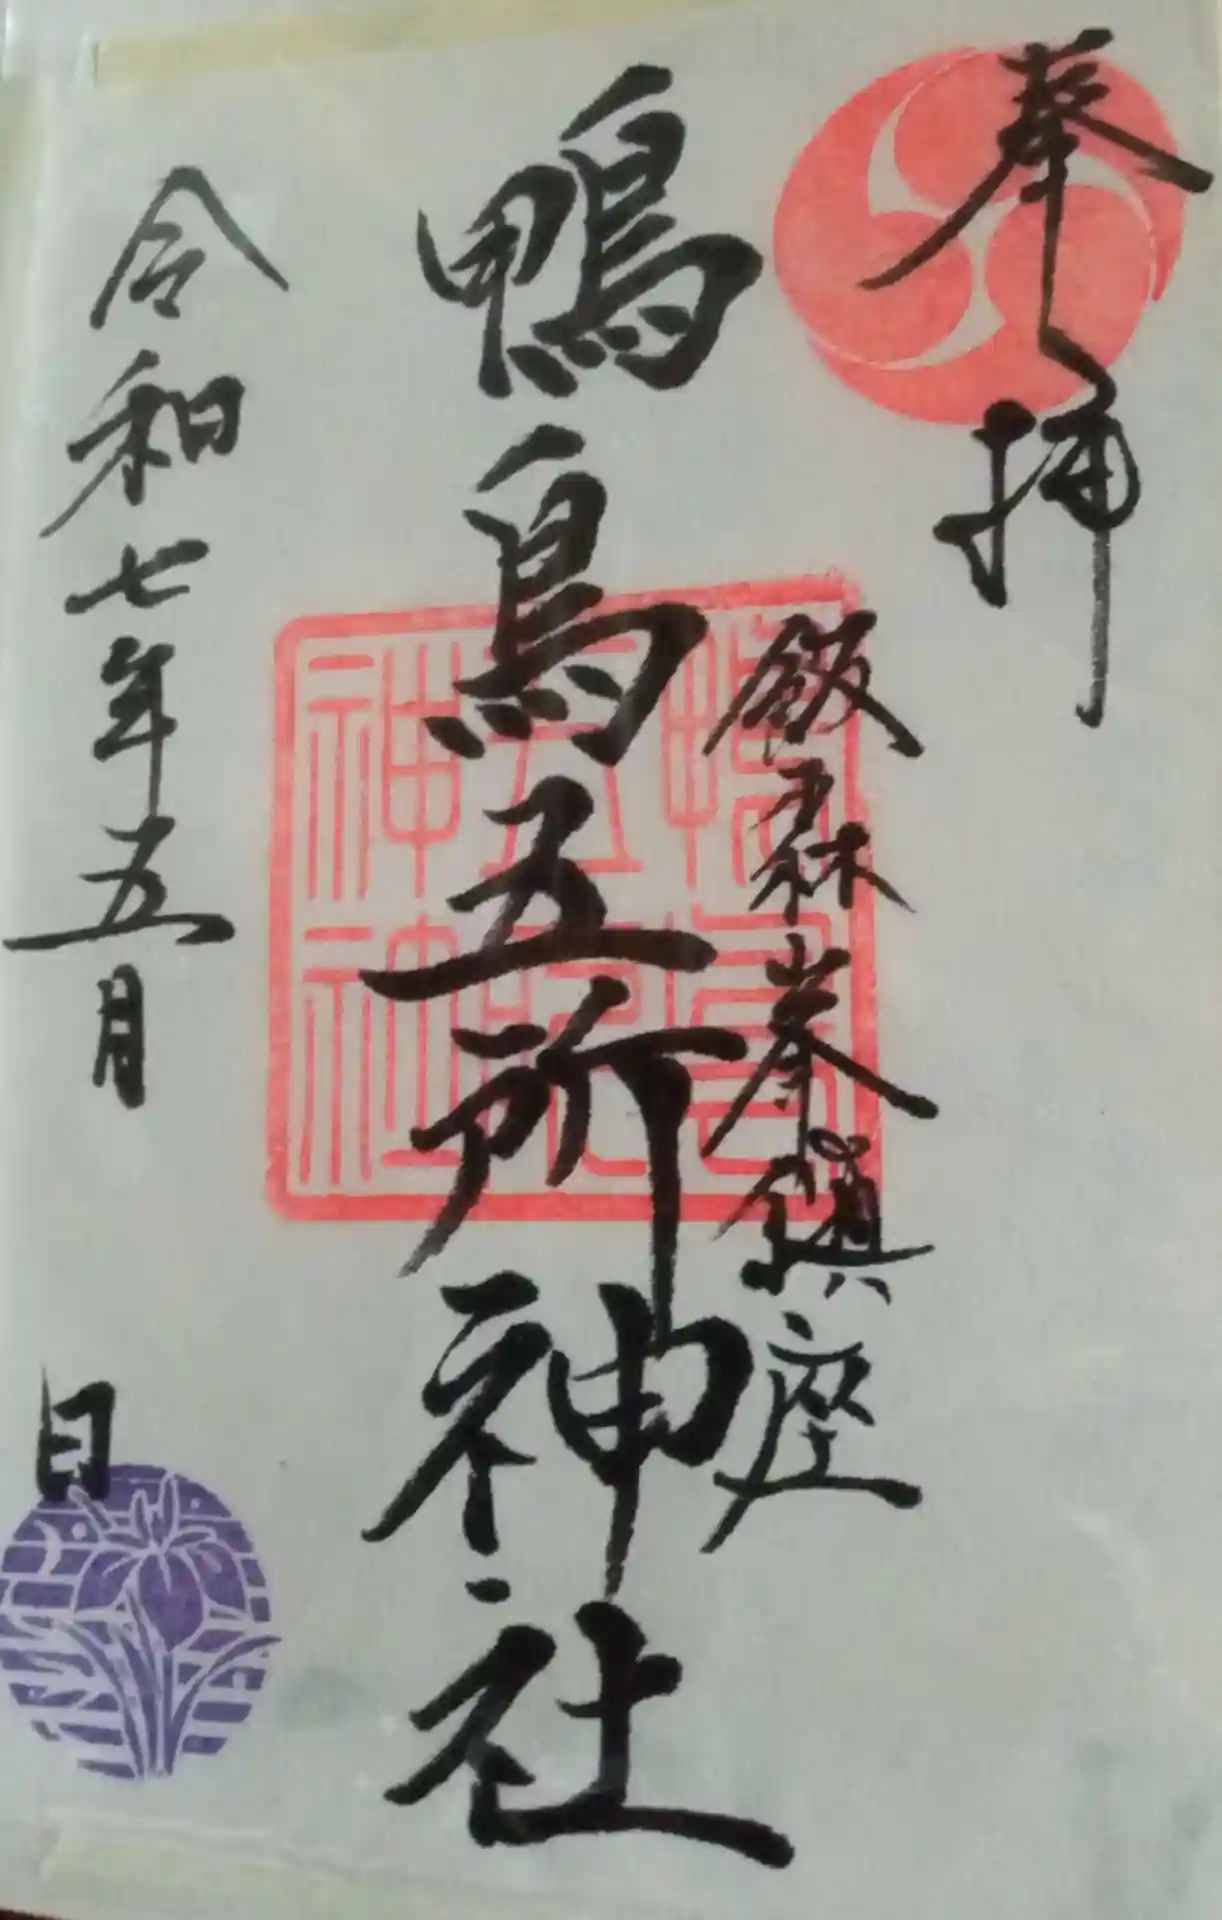 奉拝
飯森峯鎮座
鴨鳥五所神社
神社
令和七年五月 日